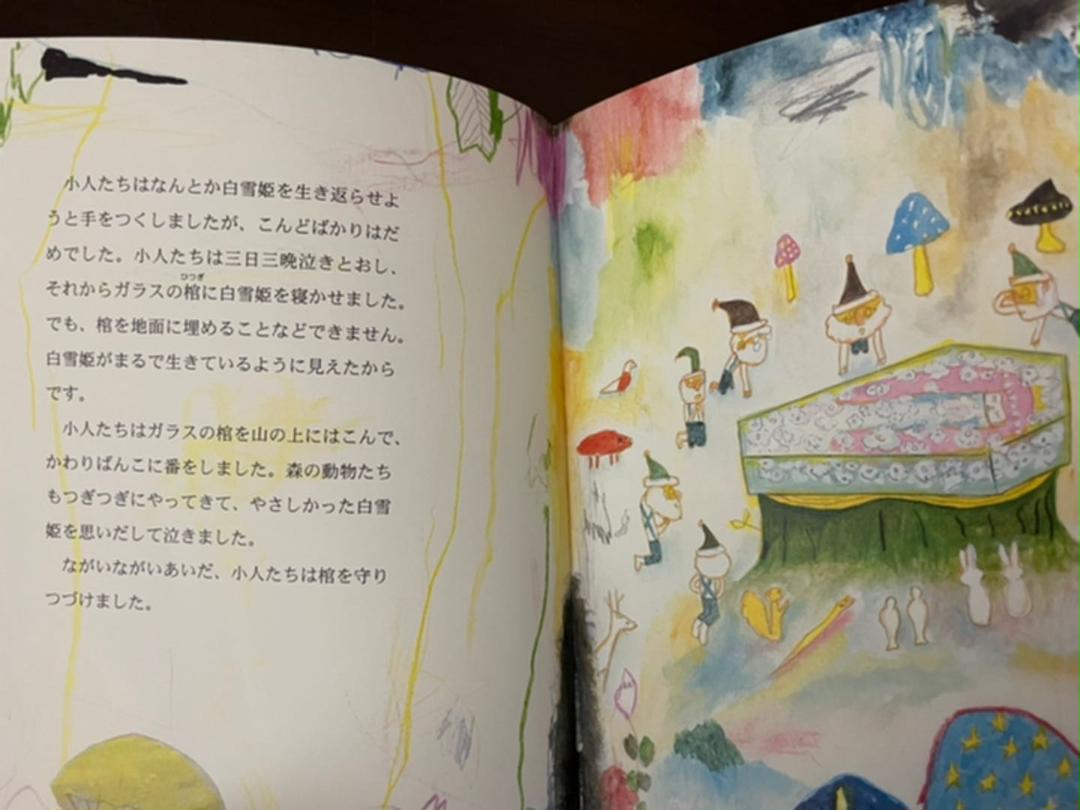 小人たちはなんとか白雪姫を生き返らせよ
うと手をつくしましたが、こんどばかりはだ
めでした。小人たちは三日三晩泣きとおし、
ひつぎ
それからガラスの棺に白雪姫を寝かせました。
でも、棺を地面に埋めることなどできません。
白雪姫がまるで生きているように見えたから
です。
小人たちはガラスの棺を山の上にはこんで、
かわりばんこに番をしました。森の動物たち
もつぎつぎにやってきて、やさしかった白雪
姫を思いだして泣きました。
ながいながいあいだ、小人たちは棺を守り
つづけました。